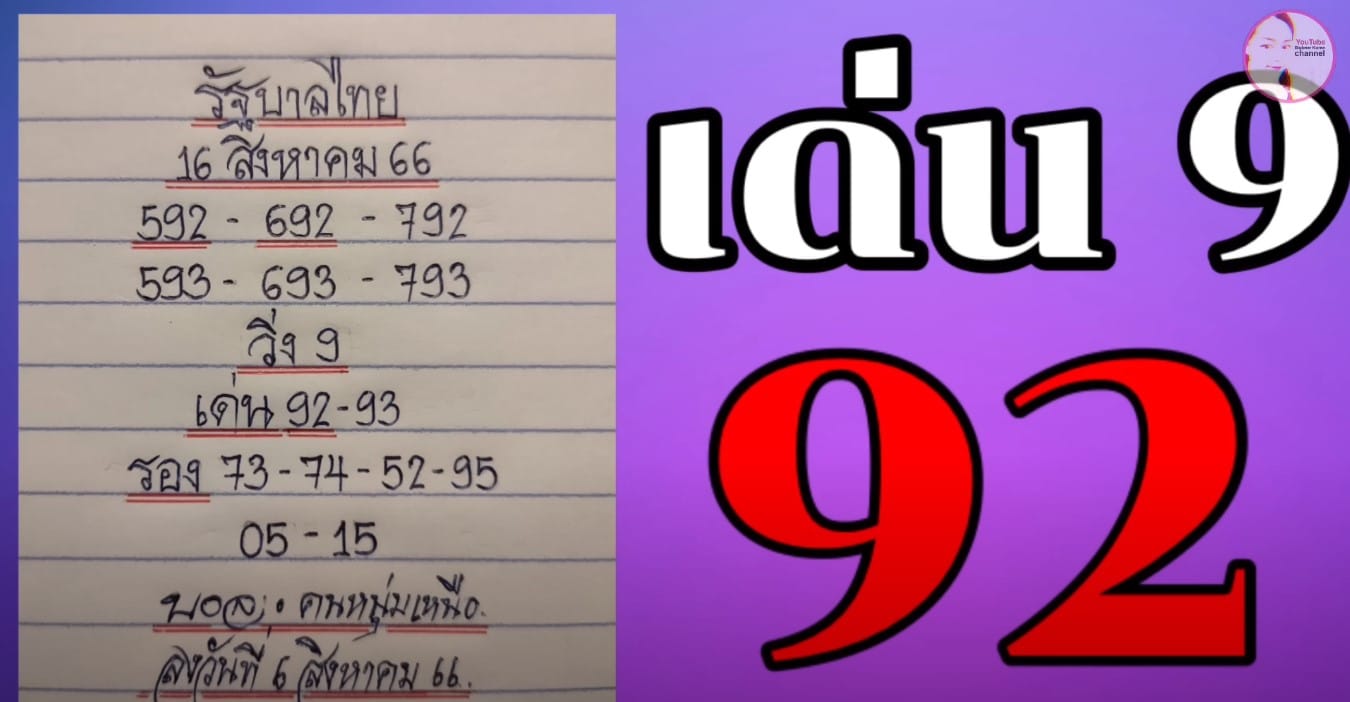 รัฐบาลไทย
16 สิงหาคม 66
592 - 692 - 792
593 - 693 - 793
วิ่ง 9
เด่น 92-93
รอง 73-74-52-95
05-15
บอล : คนหนุ่มเหนือ.
ลงวันที่ 6 สิงหาคม 66.
เด่น 9
92
YouTube
channel